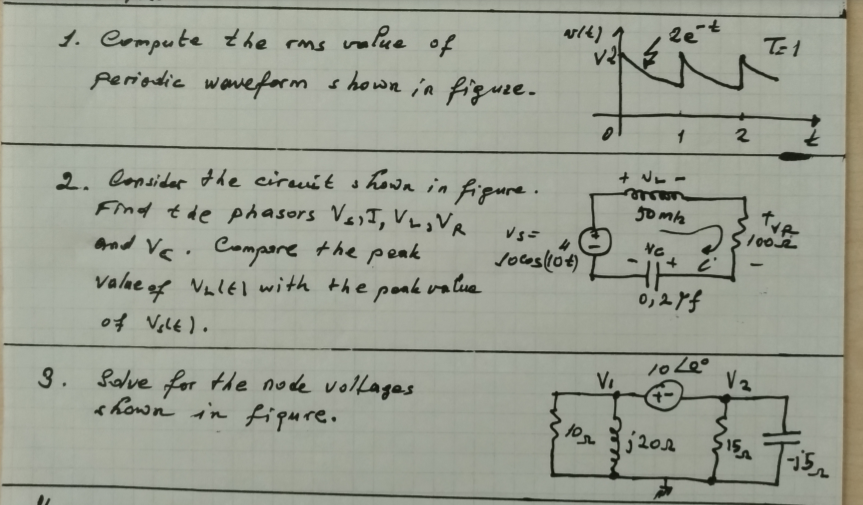 1. Compute the rms value of
periodic waveform shown in figure.
v(t)
2e^-t
T=1
V2
0 1 2 t
2. Consider the circuit shown in figure.
Find tde phasors Vs, I, VL, VR
and Vc. Compare the peak
value of VL(t) with the peak value
of Vs(t).
+ VL -
50mh
vs=
10cos(10⁴t)
+
-
+
VR
100Ω
-
- Vc +
i
0,2μf
3. Solve for the node voltages
shown in figure.
10∠0°
V1 + - V2
10Ω j20Ω 15Ω -j5Ω